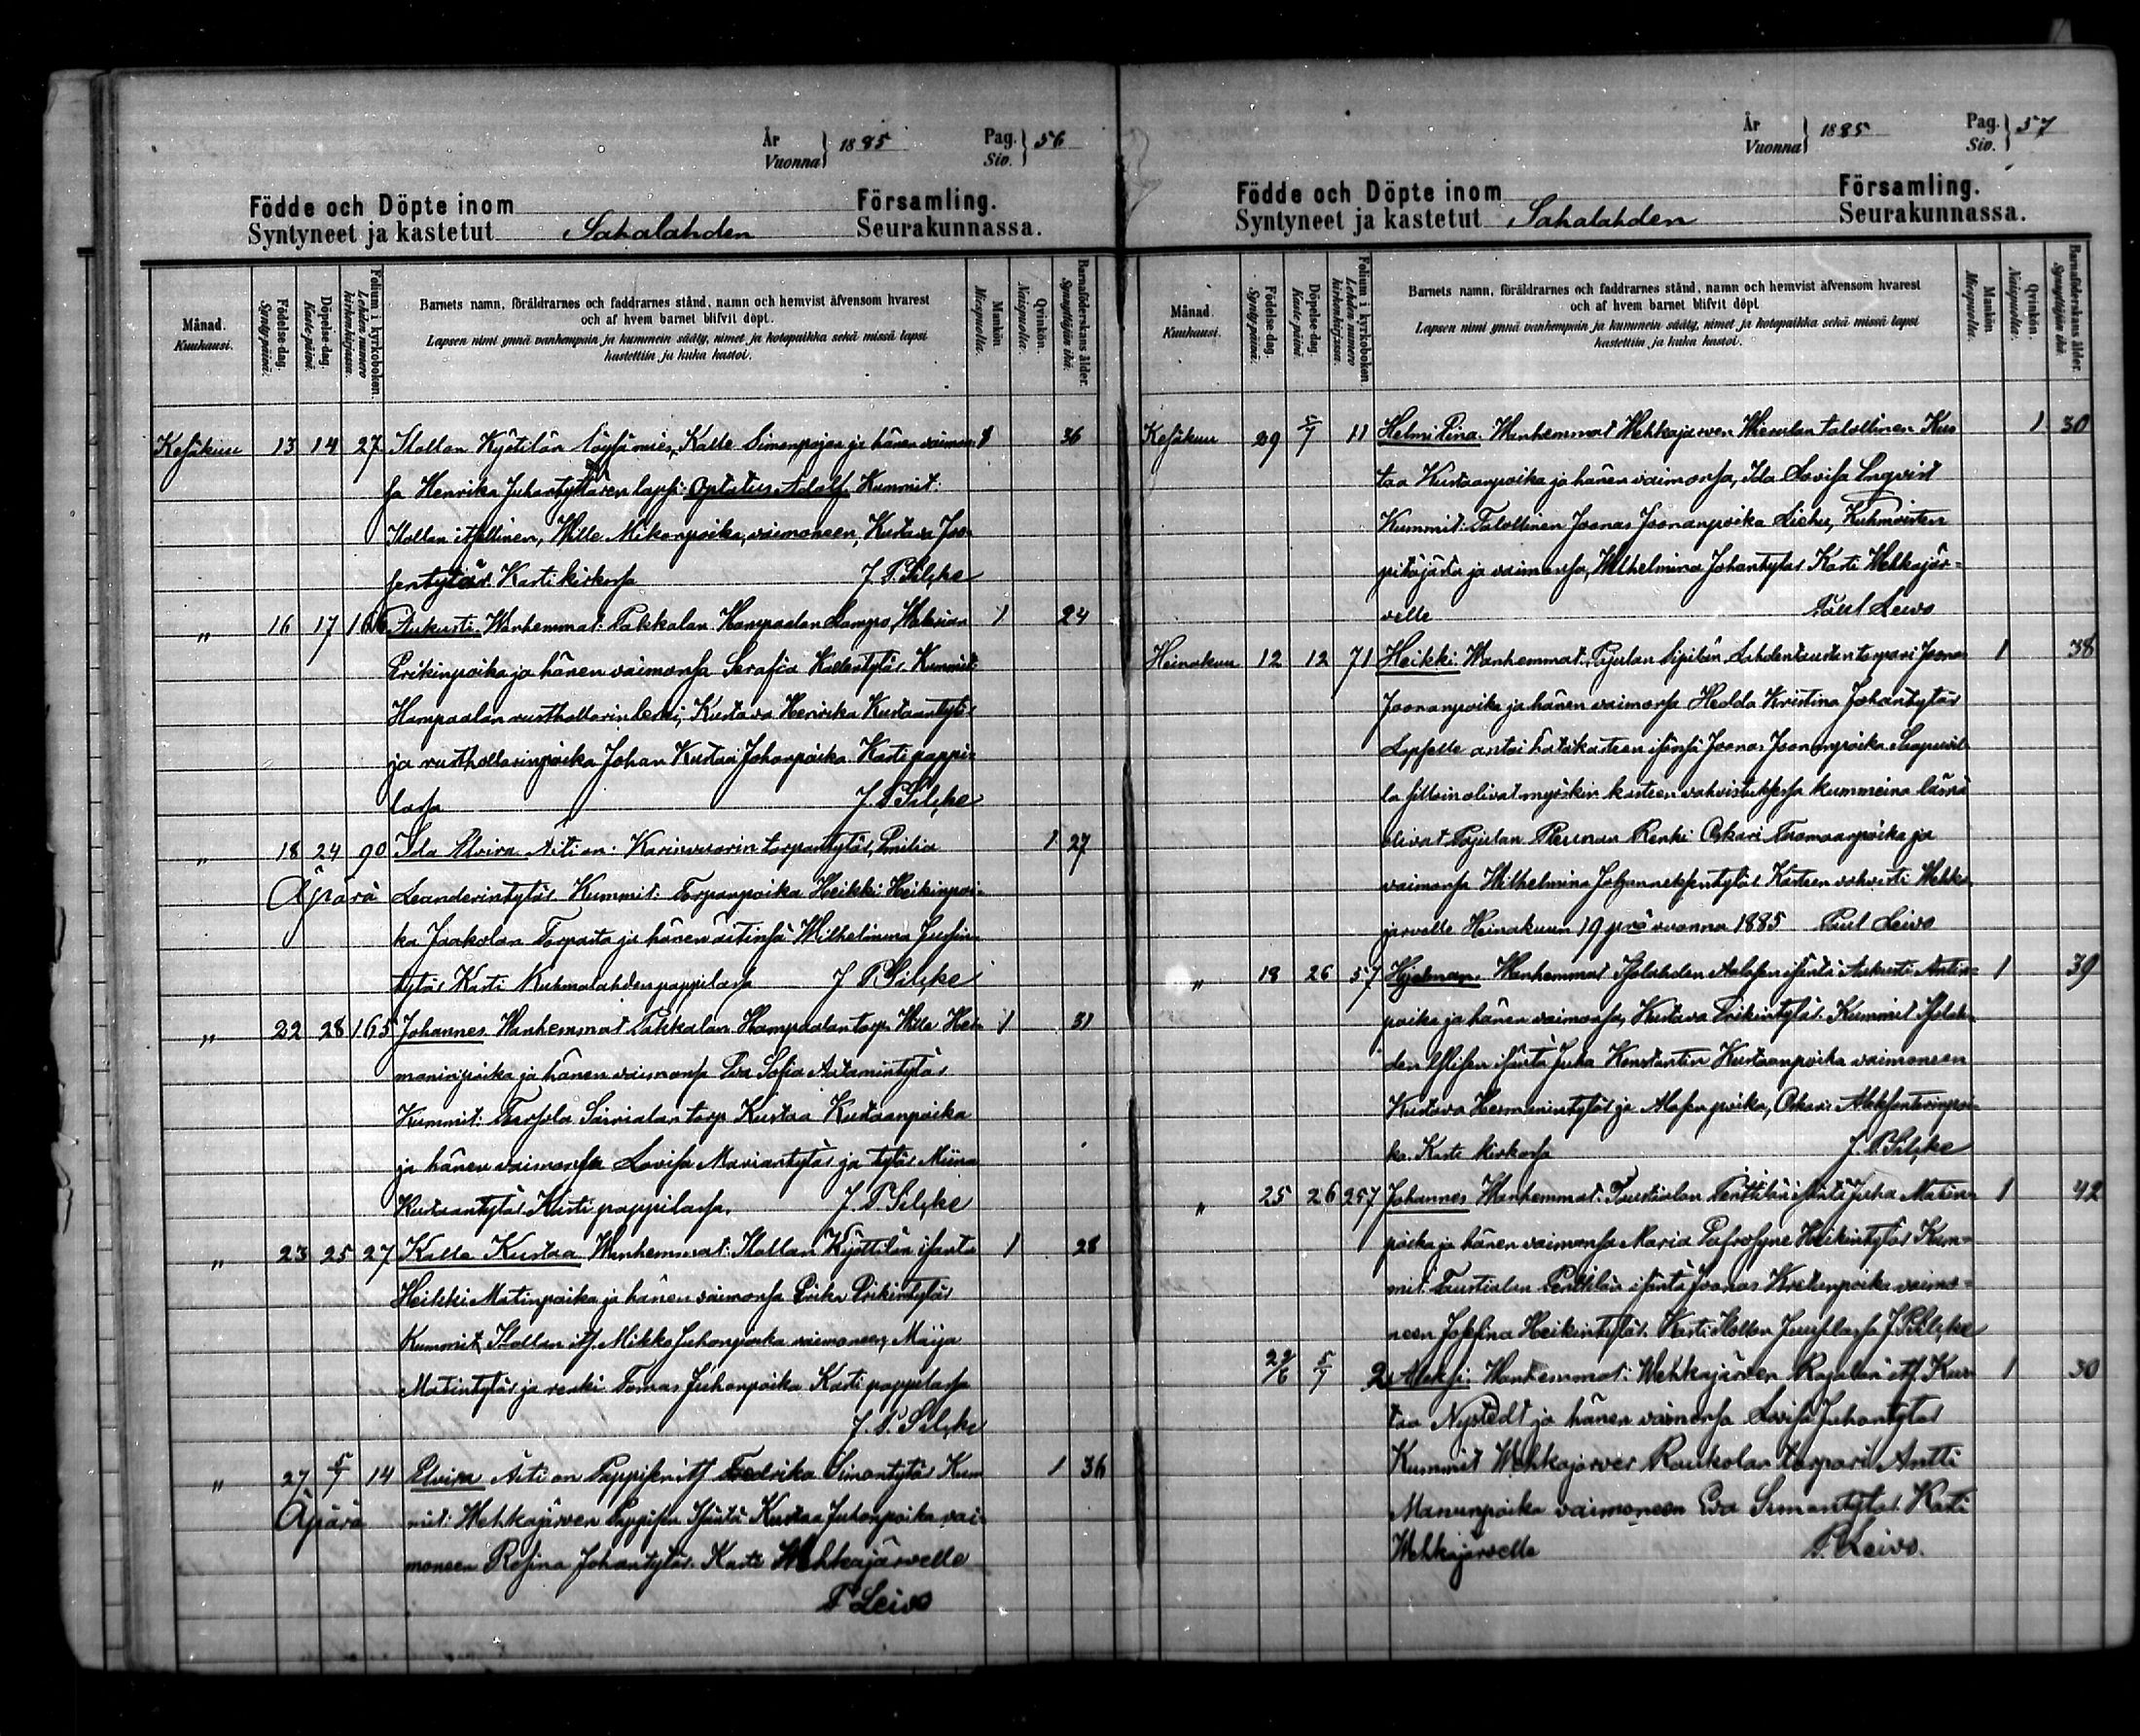 År
Vuonna } 1885 Pag.
Siv. } 56
Födde och Döpte inom Församling.
Syntyneet ja kastetut Sahalahden Seurakunnassa.
Månad.
Kuukausi.
Födelse-dag.
Syntypäivä.
Döpelse-dag.
Kastepäivä.
Folium i kyrkoboken.
Lehden numero kirkonkirjassa.
Barnets namn, föräldrarnes och faddrarnes stånd, namn och hemvist äfvensom hvarest
och af hvem barnet blifvit döpt.
Lapsen nimi ynnä vanhempain ja kummein sääty, nimet ja kotopaikka sekä missä lapsi
kastettiin ja kuka kastoi.
Mankön.
Miespuolta.
Qvinkön.
Naispuolta.
Barnaföderskans ålder.
Synnyttäjän ikä.
Kesäkuu 13 14 27 Kalle Simonpojan ja hänen vaimon- 1 36
sa Henrika Juhantyttären lapsi: Optatus Adolf. Kummit:
itsellinen, Wille Mikonpoika, vaimoneen, Kustava Joo-
sentytär. Kasti kirkossa J. P. Silcke
„ 16 17 Aukusti. Wanhemmat: Pakkalan Hampaalan 1 24
Erikinpoika ja hänen vaimonsa Serafia Kallentytär. Kummit:
Hampaalan rusthollarin leski, Kustava Henrika Kustaantytär
ja rusthollarinpoika Johan Kustaa Johanpoika. Kasti pappi-
lassa J. P. Silcke
„ 18 24 90 Ida Elvira. Äiti on: torpantytär, Emilia 1 27
Äpärä Leanderintytär. Kummit: Torpanpoika Heikki Heikinpoi-
ka Jaakolan Torpasta ja hänen äitinsä Wilhelmina
tytär Kasti Kuhmalahden pappilassa J. P. Silcke
„ 22 28 165 Johannes. Wanhemmat Pakkalan Hampaalan torp. Wille Her- 1 31
maninpoika ja hänen vaimonsa Eva Sofia Aatamintytär
Kummit: torp. Kustaa Kustaanpoika
ja hänen vaimonsa Lovisa Mariantytär ja tytär Miina
Kustaantytär Kasti pappilassa. J. P. Silcke
„ 23 25 27 Kalle Kustaa Wanhemmat: Kyöttilän isäntä 1 28
Heikki Matinpoika ja hänen vaimonsa Erika Erikintytär
Kummit, its. Mikko Juhonpoika vaimoneen, Maija
Matintytär ja renki Tomas Juhonpoika Kasti pappilassa
J. P. Silcke
„ 27 5/7 14 Elvira Äiti on Pappisen its. Fredrika Simontytär Kum 1 36
Äpärä mit: Wehkajärven Pappisen Isäntä Kustaa Juhonpoika vai-
moneen Rosina Johantytär. Kasti Wehkajärvelle
P Leivo
År
Vuonna } 1885 Pag.
Siv. } 57
Födde och Döpte inom Församling.
Syntyneet ja kastetut Sahalahden Seurakunnassa.
Månad.
Kuukausi.
Födelse-dag.
Syntypäivä.
Döpelse-dag.
Kastepäivä.
Folium i kyrkoboken.
Lehden numero kirkonkirjassa.
Barnets namn, föräldrarnes och faddrarnes stånd, namn och hemvist äfvensom hvarest
och af hvem barnet blifvit döpt.
Lapsen nimi ynnä vanhempain ja kummein sääty, nimet ja kotopaikka sekä missä lapsi
kastettiin ja kuka kastoi.
Mankön.
Miespuolta.
Qvinkön.
Naispuolta.
Barnaföderskans ålder.
Synnyttäjän ikä.
Kesäkuu 29 5/7 11 Helmi Wanhemmat Wehkajärven talollinen Kus 1 30
taa Kustaanpoika ja hänen vaimonsa, Ida Lovisa Enqvist
Kummit: Talollinen Joonas Joonanpoika Kuhmoisten
pitäjästä ja vaimonsa, Wilhelmina Johantytär Kasti Wehkajär-
velle Paul Leivo
Heinakuu 12 12 71 Heikki: Wanhemmat. Pajulan Lahdentaustan torpari Joonas 1 38
Joonanpoika ja hänen vaimonsa Hedda Kristina Johantytär
Lapselle antoi hätäkasteen isänsä Joonas Joonanpoika
la silloin olivat myöskin kasteen vahvistuksessa kummeina läsnä
olivat Pajulan Renki Oskari Tuomaanpoika ja
vaimonsa Wilhelmina Johanneksentytär Kasteen vahvisti Wehka
järvelle Heinakuun 19 p:nä vuonna 1885 Paul Leivo
„ 18 26 57 Hjalmar. Wanhemmat isäntä Aukusti Antin- 1 39
poika ja hänen vaimonsa, Kustava Erikintytär. Kummit
den isäntä Juha Konstantin Kustaanpoika vaimoneen
Kustava Hermanintytär ja poika, Oskari Aleksanterinpoi-
ka. Kasti kirkossa J. P. Silcke
„ 25 26 257 Johannes Wanhemmat: Tursialan Penttilän isäntä Juha Matin- 1 42
poika ja hänen vaimonsa Maria Eufrosyne Heikintytär Kum-
mit: Penttilän isäntä Joonas vaimo-
neen Josefina Heikintytär. Kasti J. P. Silcke
29/6 5/7 2 Aleksi: Wanhemmat: Wehkajärven Rajalan its. Kus 1 30
taa Nystedt ja hänen vaimonsa Lovisa Juhontytär
Kummit Wehkajärven Raukolan torpari Antti
Manunpoika vaimoneen Eva Simontytär. Kasti
Wehkajärvelle P. Leivo.